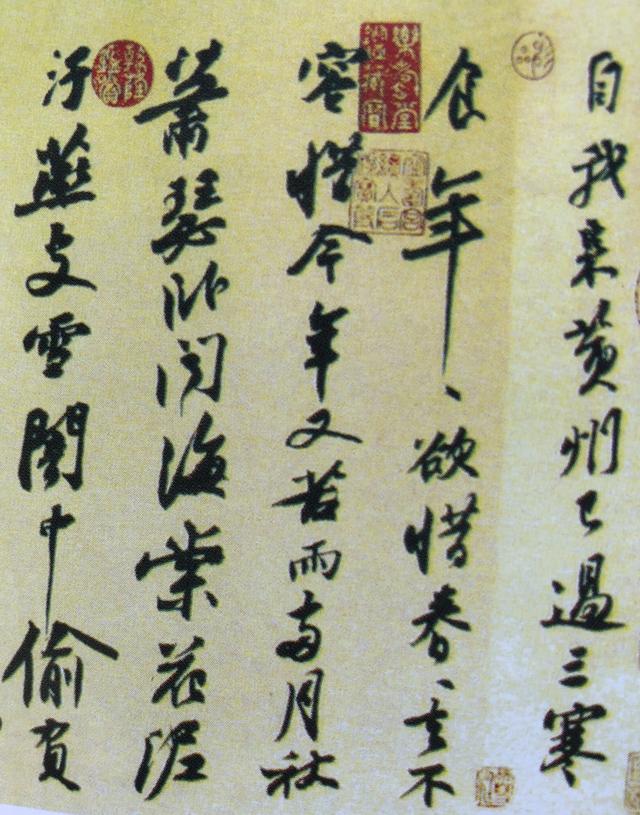 自我来黄州已過三寒
食年〻欲惜春〻去不
容惜今年又苦雨兩月秋
蕭瑟卧聞海棠花泥
汙燕支雪闇中偷負
乾隆鑑賞